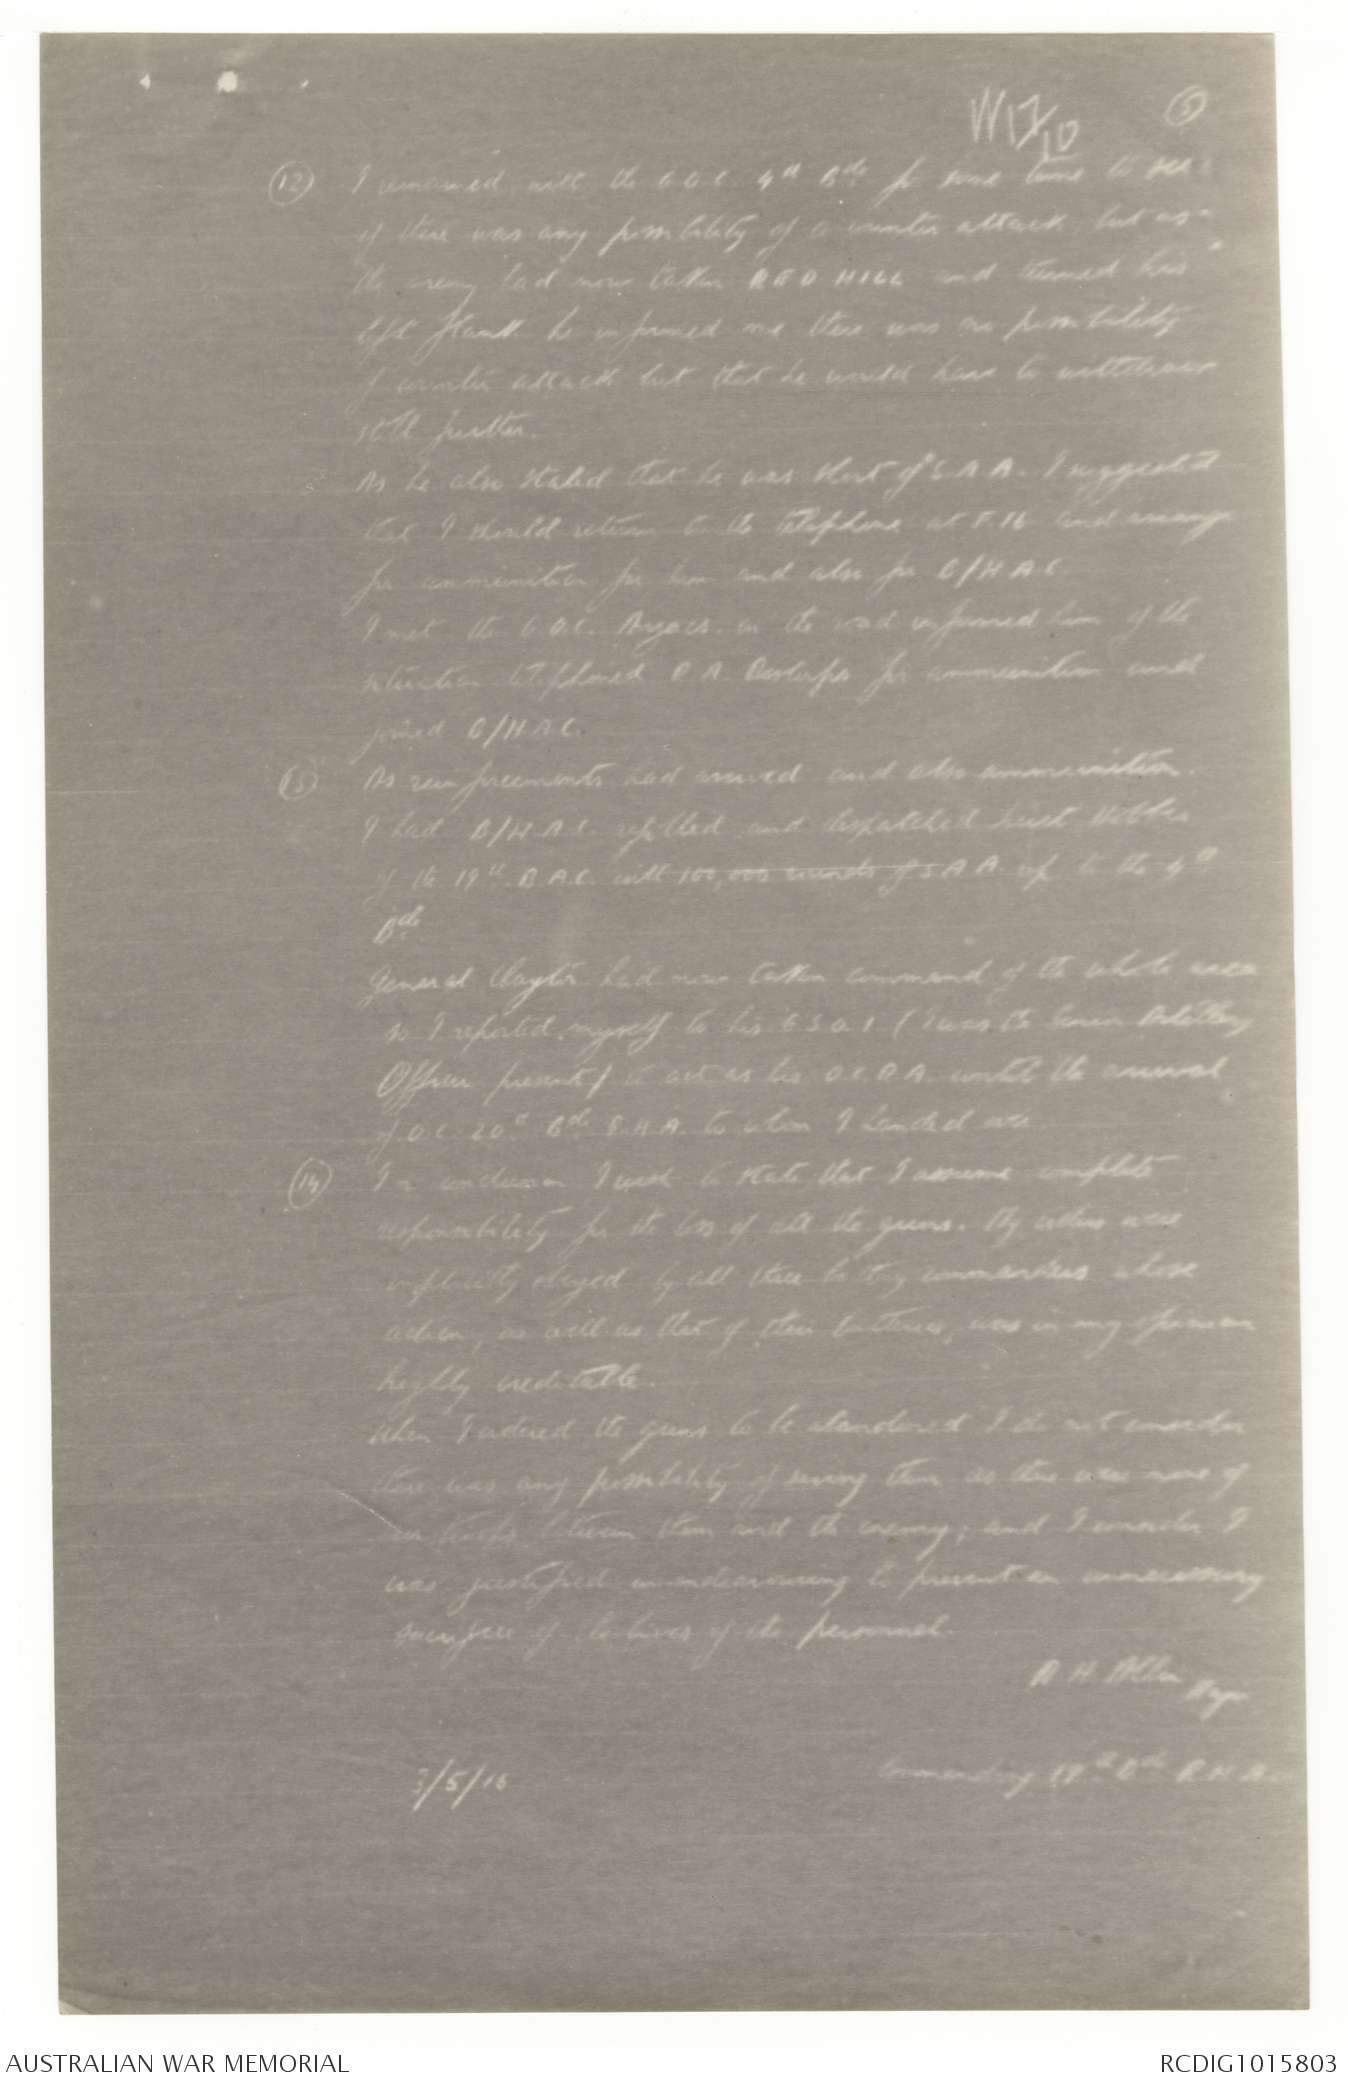 W17/10
(5)
(12) I remained with the G.O.C. 4th Bde for some time to see
if there was any possibility of a counter attack, but as
the enemy had now taken RED HILL and turned his
left flank he informed me there was no possibility
of counter attack but that he would have to withdraw
still further.
As he also stated that he was short of S.A.A. I suggested
that I should return to the telephone at and arrange
for ammunition for him and also for B/H.A.C.
I met the G.O.C. Anzacs on the road informed him of the
situation telephoned R.A. for ammunition and
joined B/H.A.C.
(13) As reinforcements had arrived and also ammunition.
I had B/H.A.C. refilled and dispatched Lieut
of the 19th B.A.C. with 100,000 rounds of S.A.A. up to the 4th
Bde.
General Chaytor had now taken command of the whole area
so I reported myself to his G.S.O.1 (I was the Senior Artillery
Officer present) to act as his O.C.R.A. until the arrival
of O.C. 20th Bde R.H.A. to whom I handed over
(14) In conclusion I wish to state that I assume complete
responsibility for the loss of all the guns. My orders were
implicitly obeyed by all three battery commanders whose
action, as well as that of their batteries, was in my opinion
highly creditable.
When I ordered the guns to be abandoned I do not consider
there was any possibility of saving them as there were none of
our troops between them and the enemy; and I consider I
was justified in endeavouring to prevent an unnecessary
sacrifice of the lives of the personnel.
Major
3/5/18 Commanding 19th Bde R.H.A.
AUSTRALIAN WAR MEMORIAL
RCDIG1015803